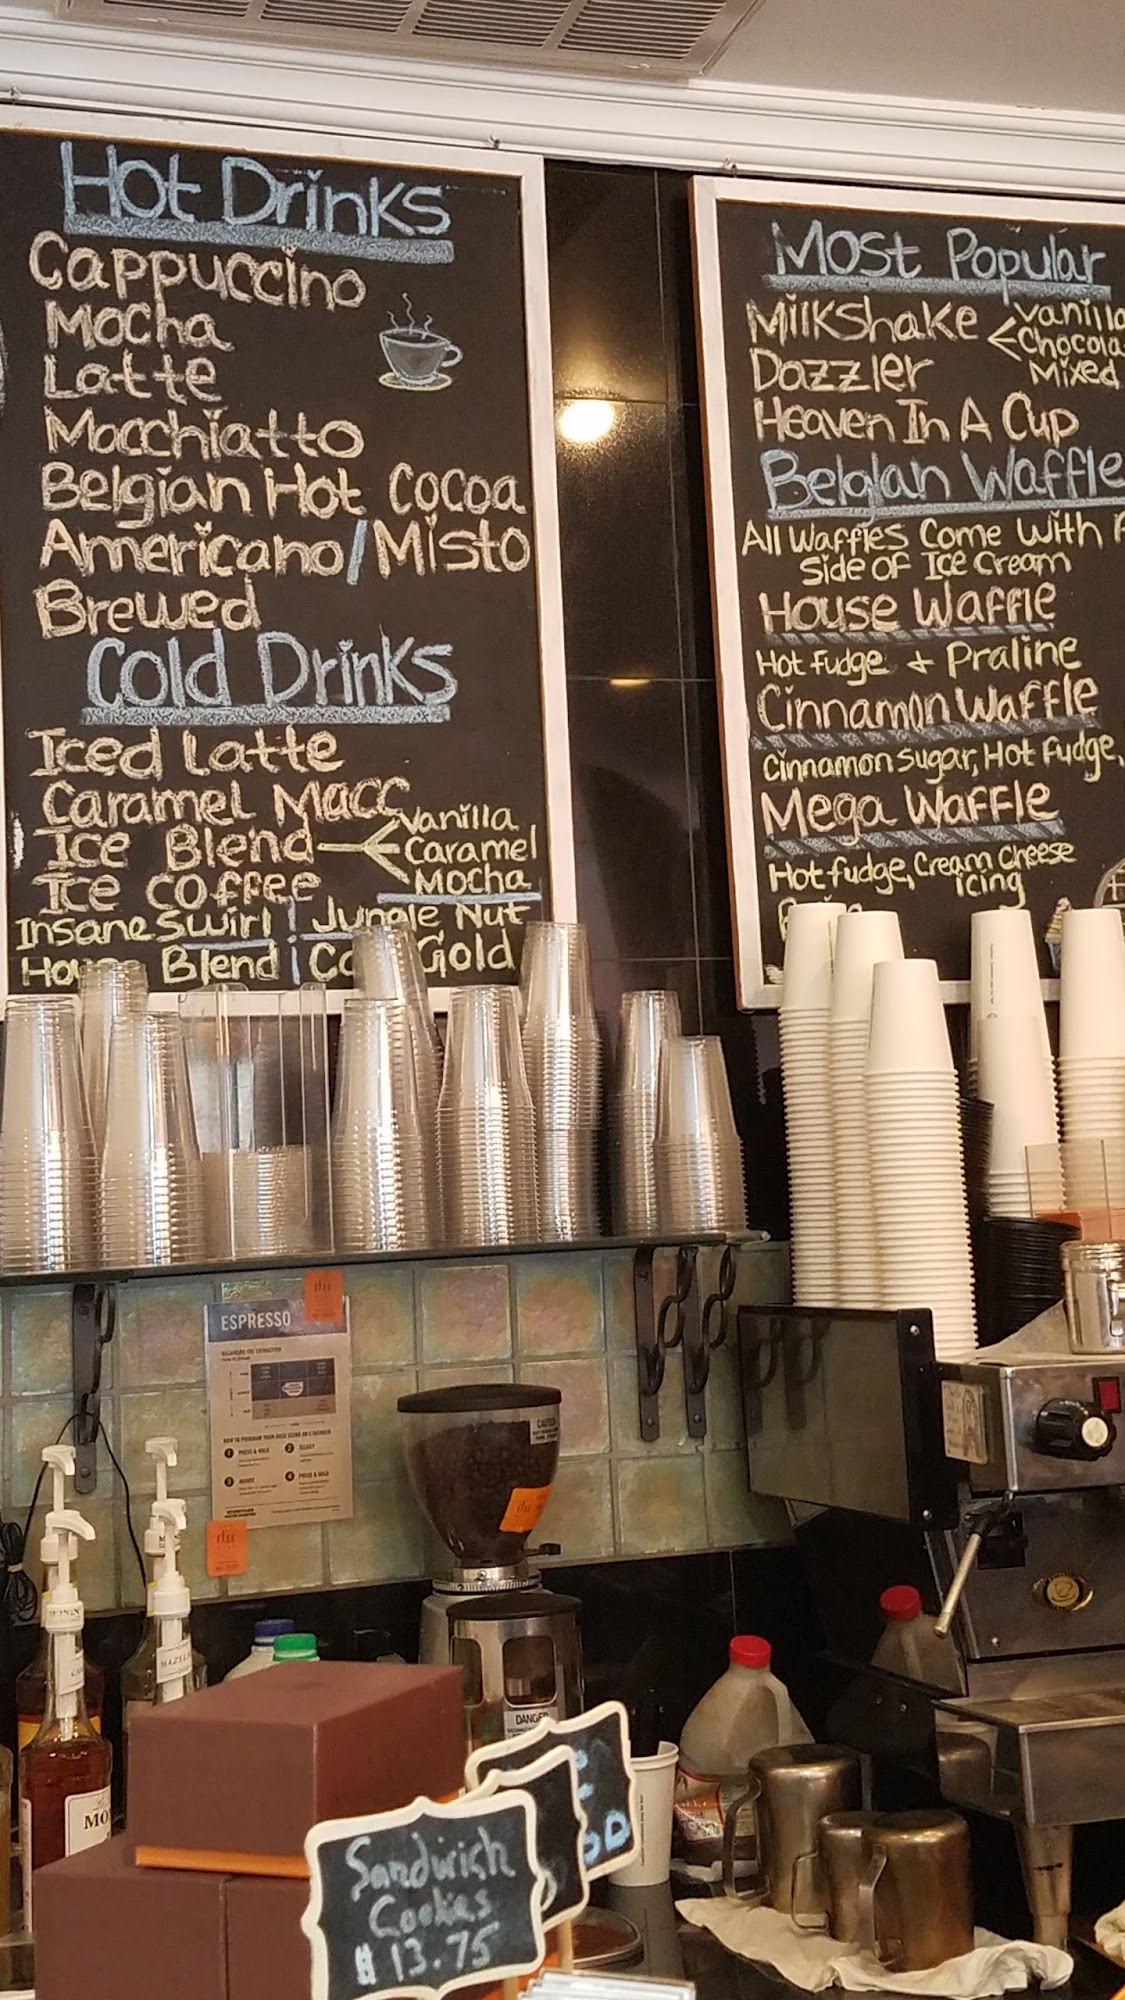 Hot Drinks
Cappuccino
Mocha
Latte
Macchiatto
Belgian Hot Cocoa
Americano/Misto
Brewed
Cold Drinks
Iced Latte
Caramel Macc
Ice Blend
Vanilla
Caramel
Mocha
Ice Coffee
Insane Swirl | Jungle Nut
Blend | Gold
Most Popular
MilkShake
Vanilla
Chocola
Mixed
Dazzler
Heaven In A Cup
Belgian Waffle
All Waffles Come With
Side Of Ice Cream
House Waffle
Hot Fudge + Praline
Cinnamon Waffle
Cinnamon Sugar, Hot Fudge,
Mega Waffle
Hot Fudge, Cream Cheese
Icing
ESPRESSO
PRESS & HOLD
SELECT
ADJUST
PRESS & HOLD
CAUTION
DANGER
MO
Sandwich
Cookies
$13.75